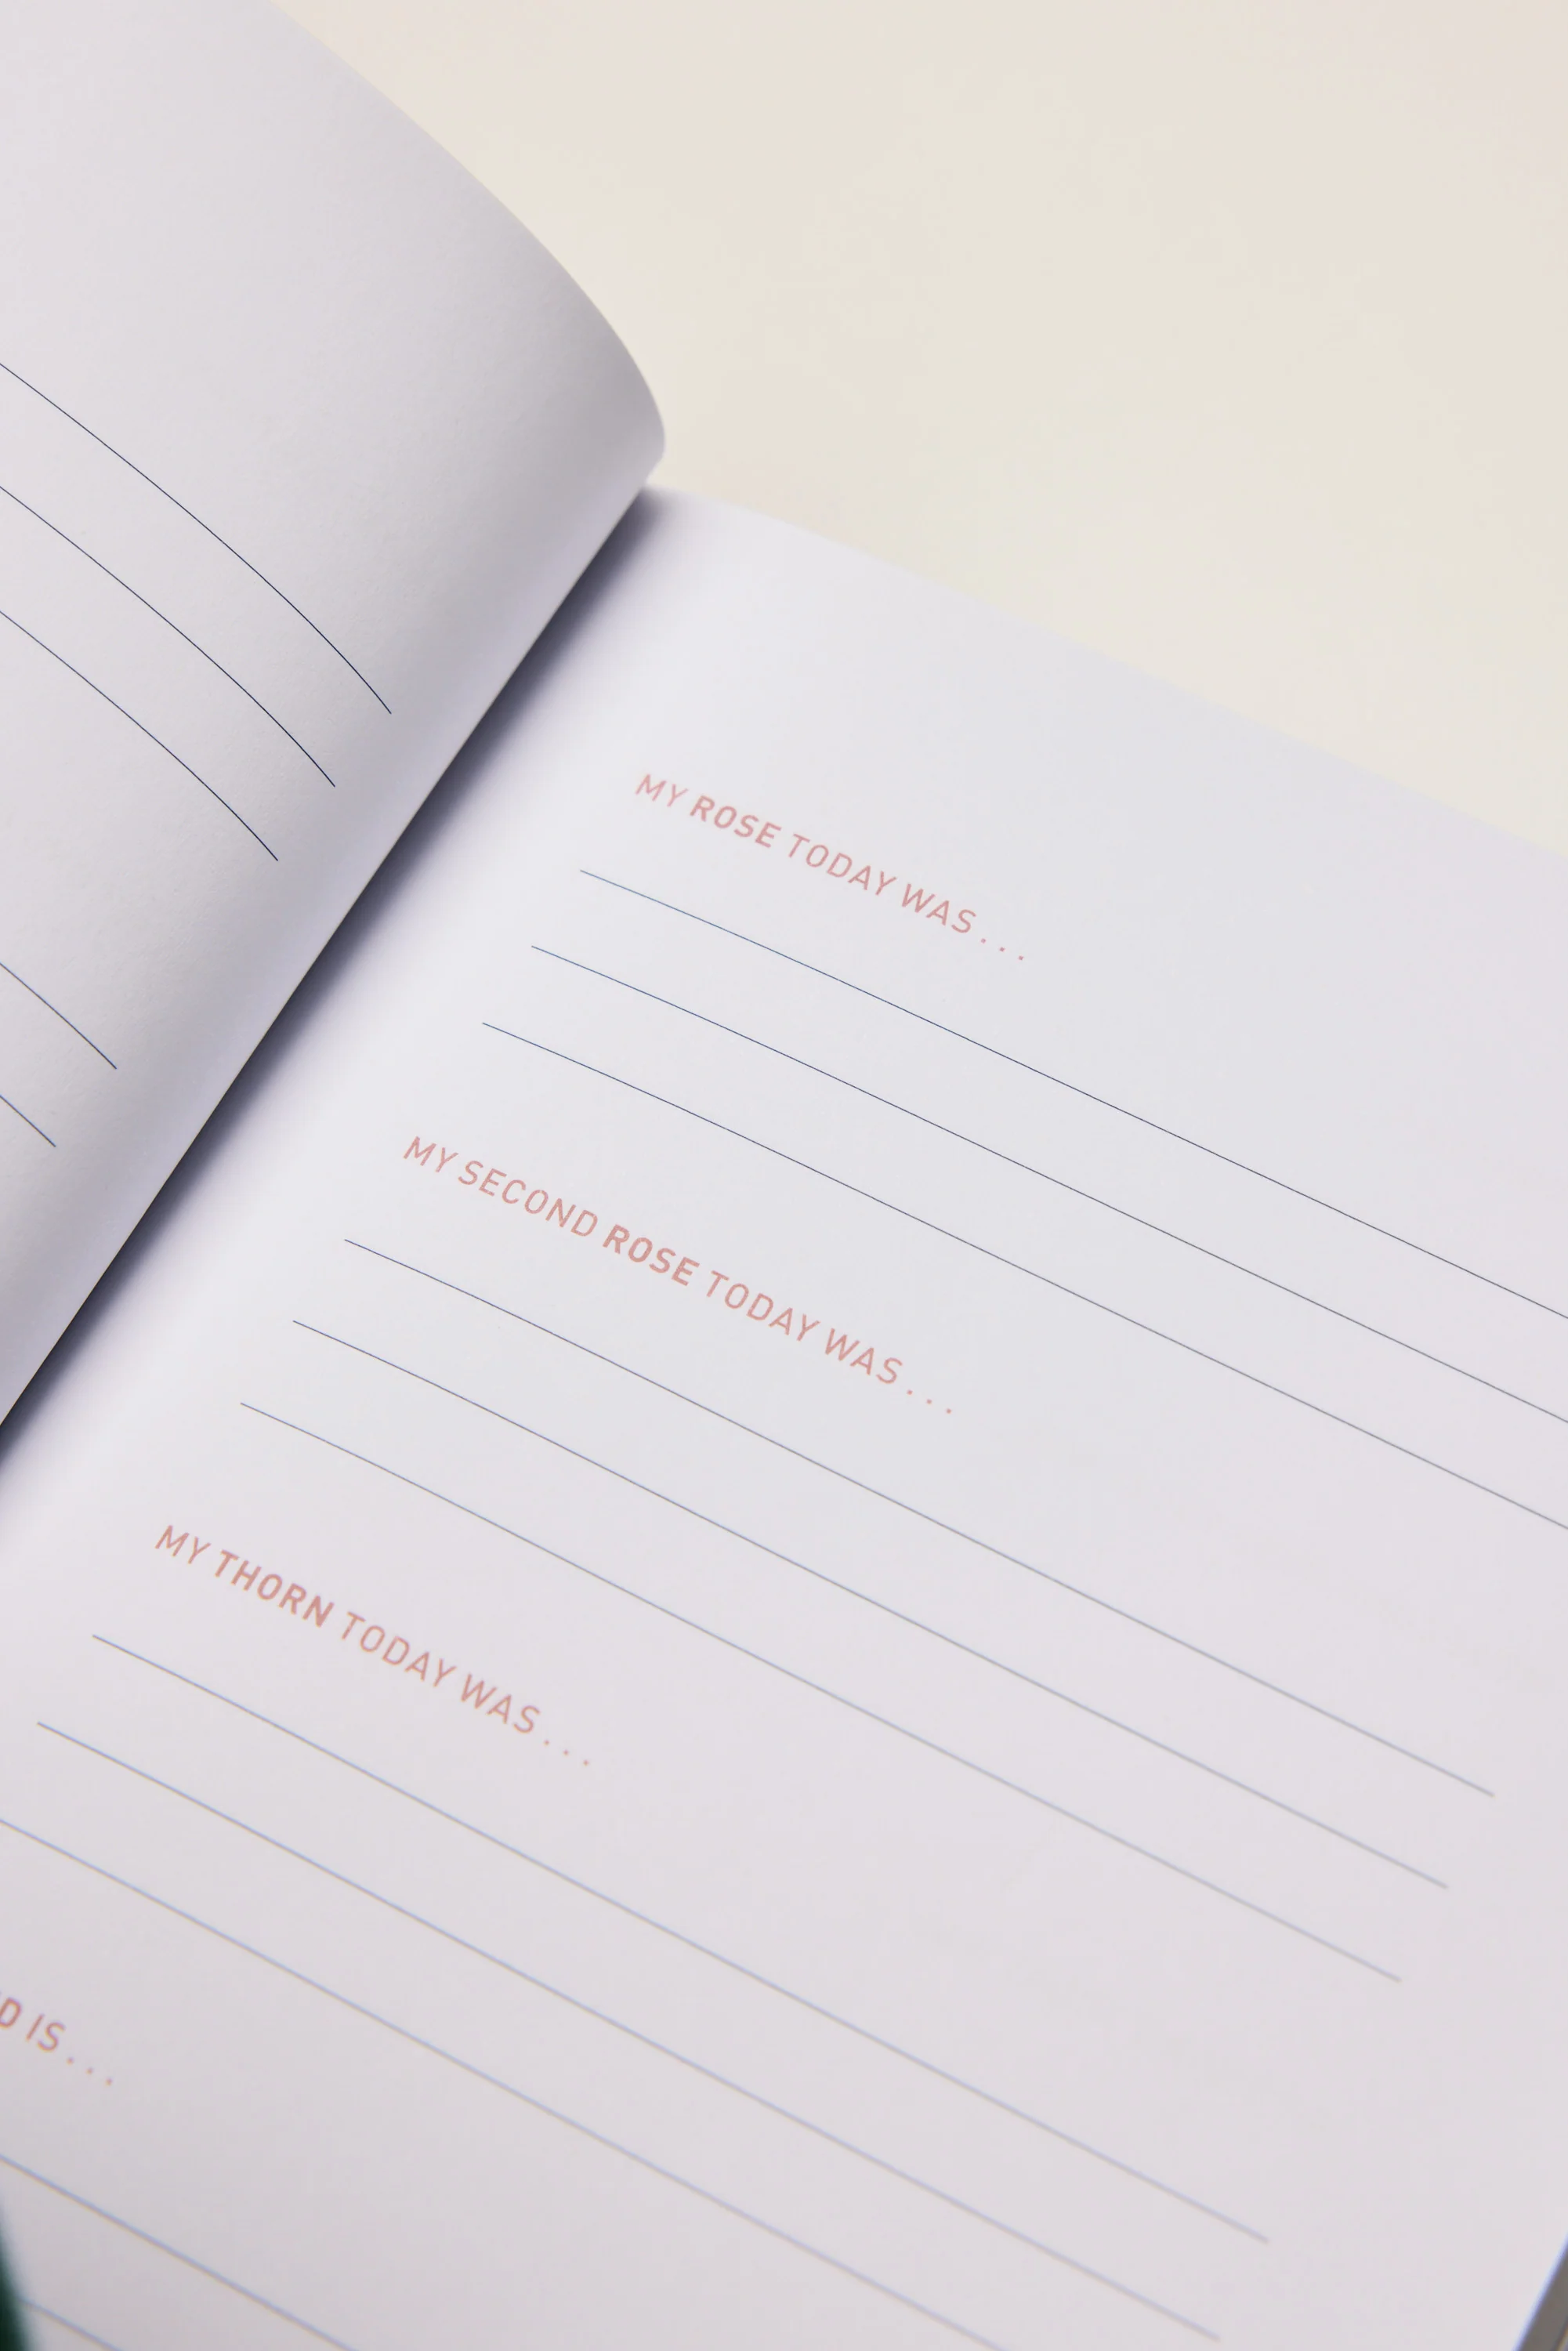 MY ROSE TODAY WAS . . .
MY SECOND ROSE TODAY WAS . . .
MY THORN TODAY WAS . . .
D IS . . .